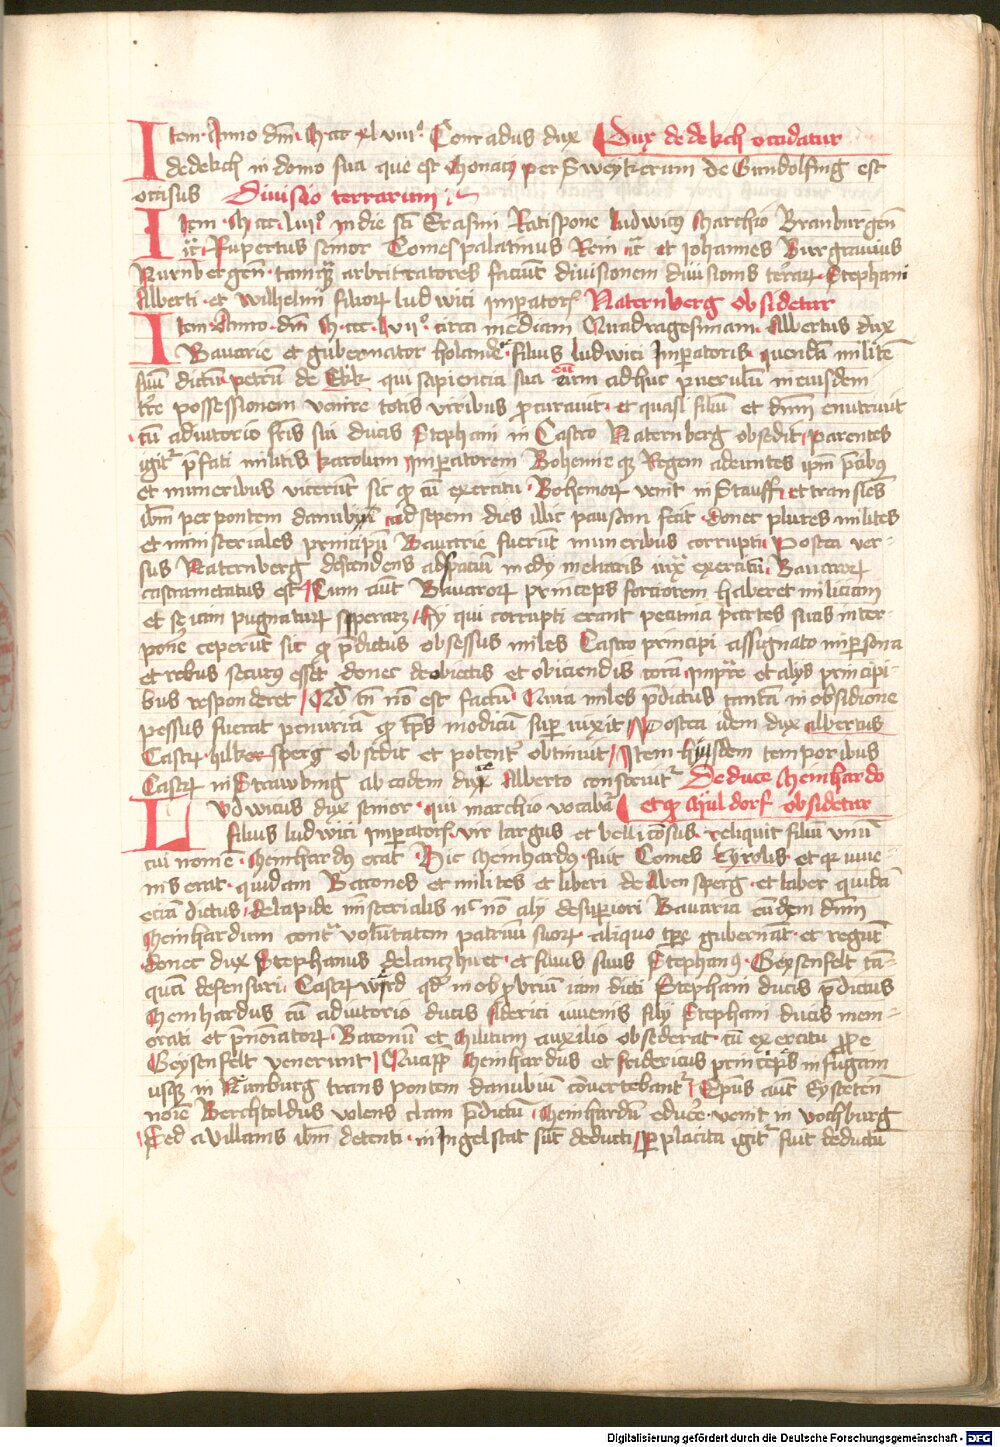 Item Anno dm̄i M ccc xl viii° Conradus dux Dux de dekch occidatur
de dekch in domo sua que est Monaci per Sweykerum de Gundolfing est
occisus Divisio terrarum
Item M ccc liii° in die sc̄i Erasmi Ratispone ludwicus Marchio Branburgen̄
Rupertus senior Comes palatinus Reni et Johannes Burgravius
Nurnbergen̄ tamq̄ arbitratores faciūt divisionem divisionis Stephani
Alberti et Wilhelmi filiorꝝ ludwici imp̄atorꝭ Naternberg obsidetur
Item Anno dm̄ M ccc lvii° circa mediam Quadragesimam Albertus dux
Bavarie et gubernator holande filius ludwici Imp̄atoris quendā militē
suū dictū petrū de Ekk qui sapiencia sua eū adhuc puerulū in eiusdem
tr̄e possessionem venire totis viribus procuravit et quasi filiū et dn̄m enutrivit
cū adiutorio fr̄is sui ducis Stephani in Castro Naternberg obsedit parentes
igit᷑ p̄fati militis karolum imp̄atorem Bohemie qꝫ Regem adeuntes ip̄m p̄cibꝫ
et muneribus vicerūt sic ꝙ cū exercitu Bohemorꝝ venit in Stauff et transiēs
ibm̄ per pontem danubii ad septem dies illic pausam fecit donec plures milites
et ministeriales principū Bavarie fuerūt muneribus corrupti Postea ver-
sus Naternberg descendens ad spaciū medii miliaris iux̄ exercitū Bavarorꝝ
castrametatus est Cum aūt Bavarorꝝ princeps forciorem haberet miliciam
et se iam pugnaturꝝ speraret hii qui corrupti erant pecunia partes suas inter-
ponē ceperūt sic ꝙ p̄dictus obsessus miles Castro principi assignato in persona
et rebus securus esset donec de obiectis et obiciendis corā imp̄re et aliis principi-
bus responderet Qd̄ tn̄ nō est factū Quia miles p̄dictus tantā in obsidione
pessus fuerat penuriā ꝙ tp̄s modicū sup̄ vixit Postea idem dux albertus
Castrꝝ hilkersperg obsedit et potent᷑ obtinuit Item huiusdem temporibus
Castrꝝ in Strawbing ab eodem duce Alberto construit᷑ De duce Meinhardo
Ludwicus dux senior qui marchio vocabat᷑ et ꝙ Müldorf obsidetur
filius ludwici imp̄atorꝭ vir largus et bellicosus reliquit filiū unū
cui nomē Meinhardꝰ erat Hic Meinhardꝰ fuit Comes tyrolis et qꝛ iuve-
nis erat quidam Barones et milites et liberi de Abensperg et laber quidā
eciā dictus de lapide mīsterialis nc̄ nō alii de superiori Bavaria eūdem dn̄m
Meinhardum contᵃ voluntatem patruū suorꝝ aliquo tp̄e gubernāt et regūt
donec dux Stephanus de lanczhuet et filius suus Stephanꝰ Geysenfelt tā-
quā defensuri Castrꝝ wǒrd qd̄ in obprobriū iam dicti Stephani ducis p̄dictus
Meinhardus cū adiutorio ducis friderici iuvenis filii Stephani ducis mem-
orati et p̄noīatorꝝ Baronū et Militum auxilio obsederat cū exercitu ꝓpe
Geysenfelt venerunt Quapp̄ Meinhardus et fridericus principes in fugam
usqꝫ in Nǎnburg trans pontem danubii cōvertebant᷑ Ep̄us aūt Eystetēn
noīe Berchtoldus volens clam p̄dictū Meinhardū educe᷑ venit in vochburg
Sed a villanis ibm̄ detenti in Ingelstat sūt deducti per placita igit᷑ fuit deductū
Digitalisierung gefördert durch die Deutsche Forschungsgemeinschaft - DFG